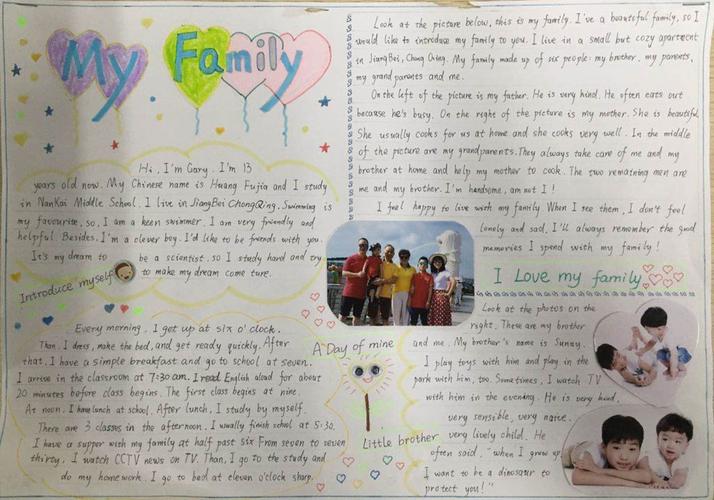 My Family
Hi, I'm Gary. I'm 13
years old now. My Chinese name is Huang Fujia and I study
in NanKai Middle School. I live in JiangBei ChongQing. Swimming is
my favourite, so, I am a keen swimmer. I am very friendly and
helpful. Besides. I'm a clever boy. I'd like to be friends with you.
It's my dream to be a scientist. so I study hard and try
to make my dream come ture.
Introduce myself
Every morning. I get up at six o'clock.
Than. I dress, make the bed, and get ready quickly. After
that. I have a simple breakfast and go to school at seven.
I arrive in the classroom at 7:30am. I read English aloud for about
20 minutes before class begins. The first class begins at nine.
At noon. I have lunch at school. After lunch, I study by myself.
There are 3 classes in the afternoon. I usually finish school at 5:30.
I have a supper with my family at half past six From seven to seven
thirty. I watch CCTV news on TV. Than, I go to the study and
do my homework. I go to bed at eleven o'clock sharp.
A Day of mine
Little brother
Look at the picture below, this is my family. I've a beautiful family, so I
would like to introduce my family to you. I live in a small but cozy apartment
in JiangBei, Chong Qing. My family made up of six people: my brother, my parents,
my grandparents and me.
On the left of the picture is my father. He is very kind. He often eats out
because he's busy. On the right of the picture is my mother. She is beautiful
She usually cooks for us at home and she cooks very well. In the middle
of the picture are my grandparents. They always take care of me and my
brother at home and help my mother to cook. The two remaining men are
me and my brother. I'm handsome, am not I!
I feel happy to live with my family. When I see them, I don't feel
lonely and sad. I'll always remember the good
memories I spend with my family!
I Love my family
Look at the photos on the
right. These are my brother
and me. My brother's name is Sunny.
I play toys with him and play in the
park with him, too. Sometimes, I watch TV
with him in the evening. He is very kind,
very sensible, very naive.
very lively child. He
often said, "when I grow up
I want to be a dinosaur to
protect you!"